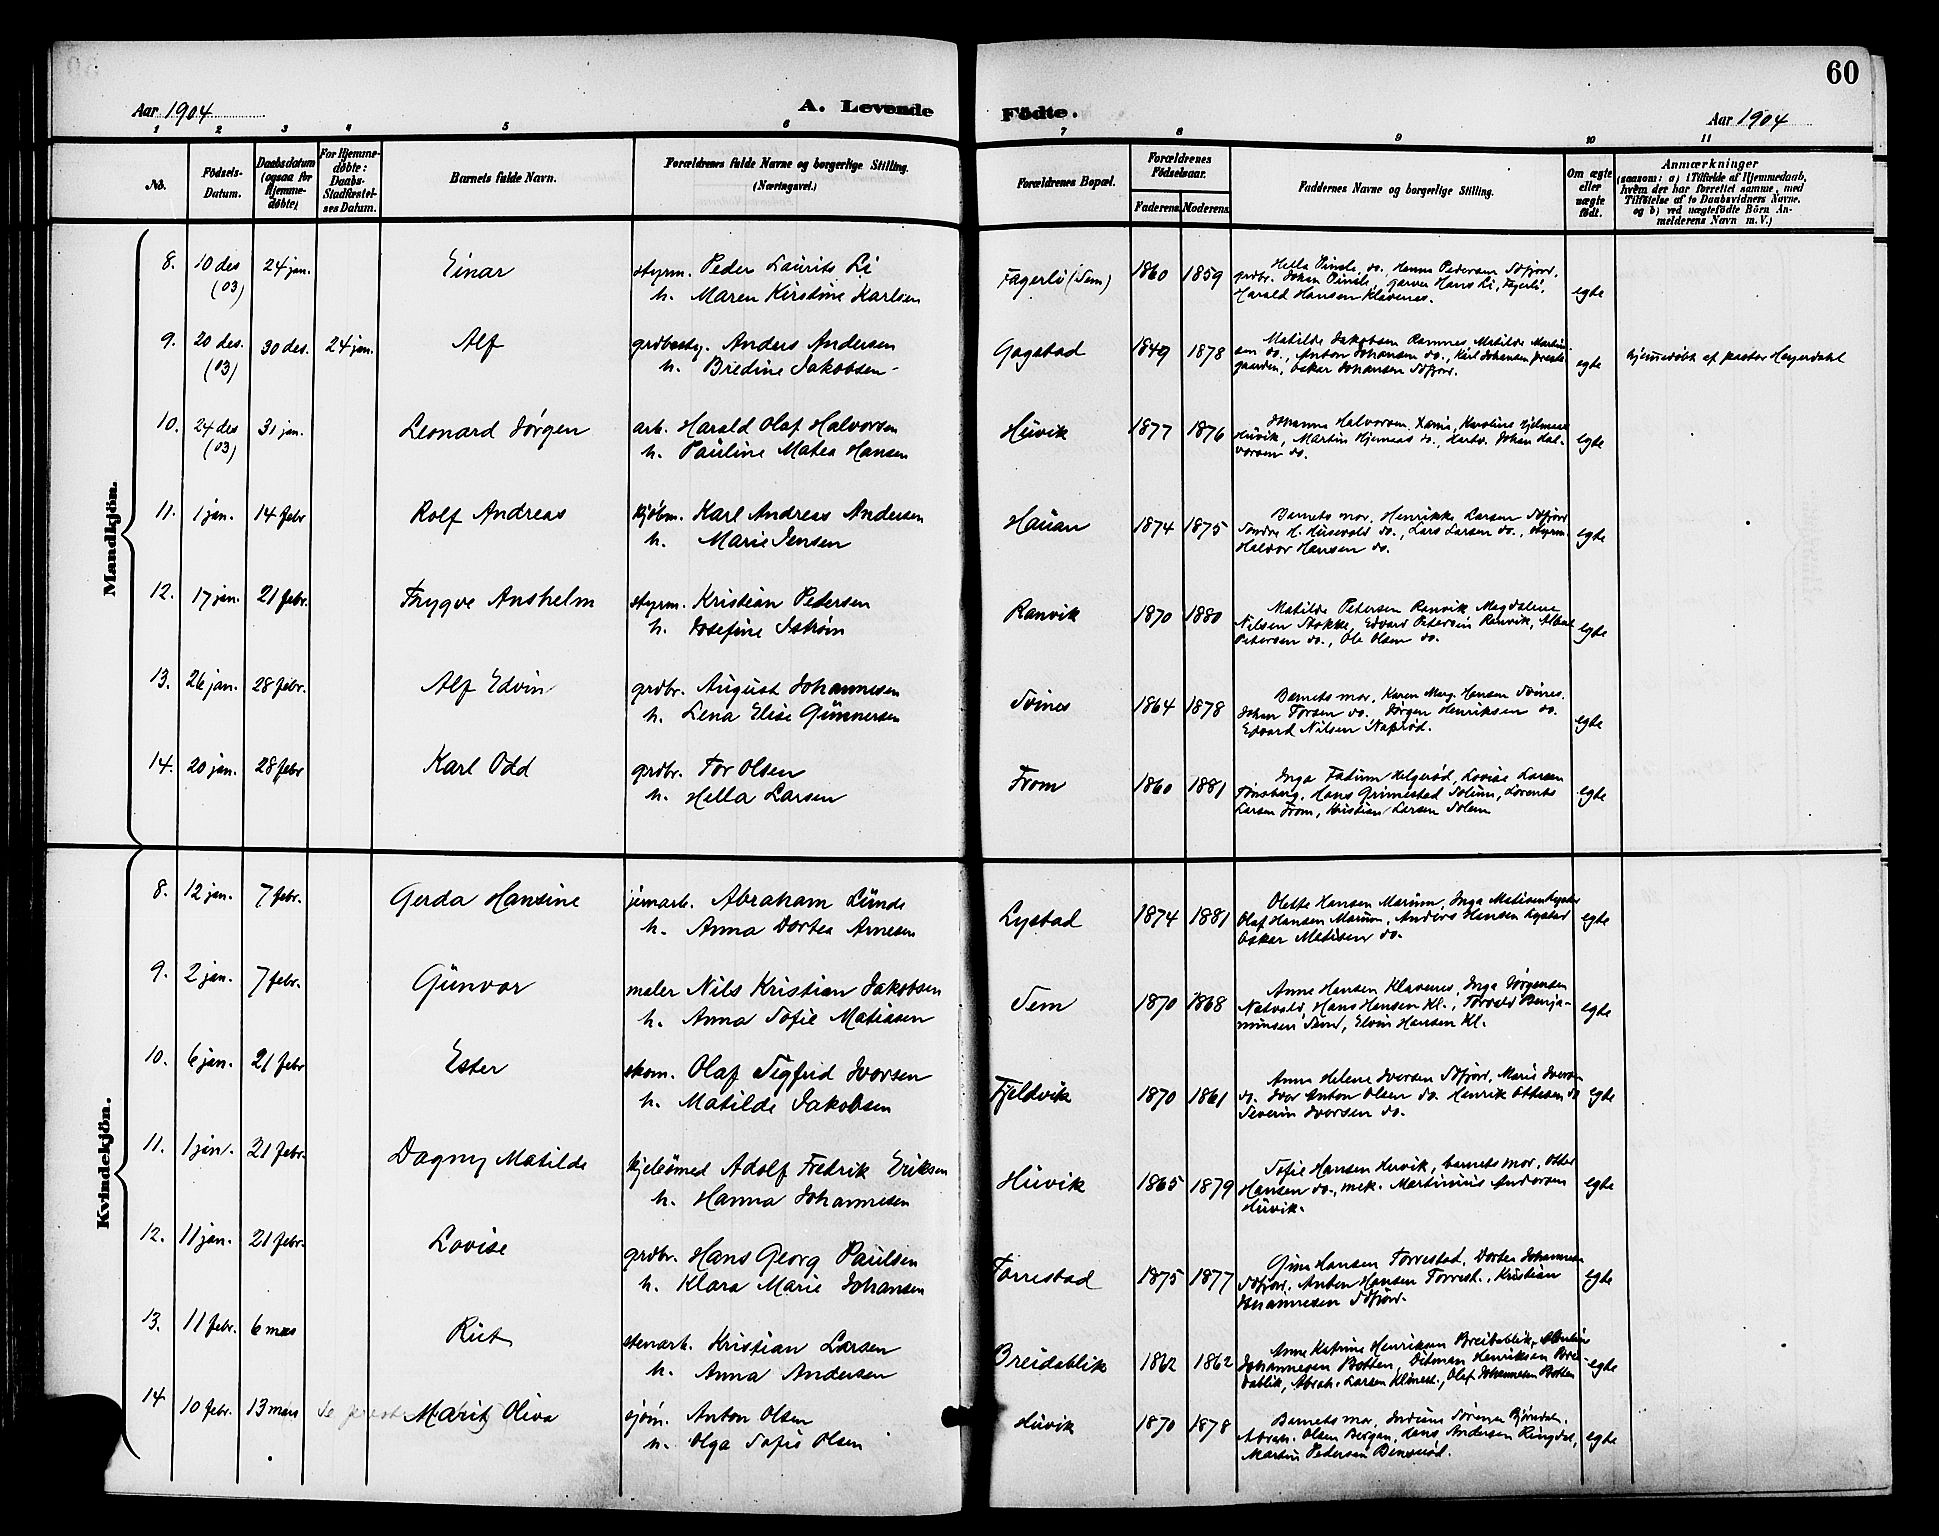 60
Aar 1904
A. Levende
Födte.
Aar 1904
1 2 3 4 5 6 7 8 9 10 11
No.
Födsels-Datum.
Daabsdatum (ogsaa for Hjemmedöbte)
For Hjemmedöbte: Daabs-Stadfæstelses Datum.
Barnets fulde Navn.
Forældrenes fulde Navne og borgerlige Stilling. (Næringsvei.)
Forældrenes Bopæl.
Forældrenes Födselsaar.
Faderens. Moderens.
Faddernes Navne og borgerlige Stilling.
Om ægte eller uægte födt.
Anmærkninger
(saasom: a) i Tilfælde af Hjemmedaab,
hvem der har forrettet samme, med
Tilföielse af to Daabsvidners Navne.
og b) ved uægtefödte Börn Anmelderens Navn m. V.)
Mandkjön.
8. 10 des (03) 24 jan. Einar styrm. Peder Laurits Li
h. Maren Kirstine Karlsen
Fagerli (Sem) 1860 1859
Harald Hansen Klavenes. egte
9. 20 des. (03) 30 des. 24 jan. Alf grdbesty. Anders Andersen
h. Bredine Jakobsen
Gogstad 1849 1878 Matilde Jakobsen Ramnes, Matilde Martinsen do., Anton Johansen do., Karl Johansen Prestegaarden, Oskar Johansen Sdfjord. egte hjemmedøbt af pastor Heyerdahl
10. 24 des (03) 31 jan. Leonard Jørgen arb. Harald Olaf Halvorsen
h. Pauline Matea Hansen
Huvik 1877 1876 Johanne Halvorsen
Huvik, Martin Hjemaas do., Johan Halvorsen do. egte
11. 1 jan. 14 febr Rolf Andreas kjøbm. Karl Andreas Andersen
h. Marie Jensen
Hauan 1874 1875 Barnets mor, Henrikke Larsen Sdfjord
H. Husevold do., Lars Larsen do., styrm.
Halvor Hansen do. egte
12. 17 jan. 21 febr. Trygve Anshelm styrm. Kristian Pedersen
h. Josefine
Ranvik 1870 1880 Matilde Petersen Ranvik, Magdalene
Nilsen Stokke, Edvard Petersen Ranvik, Albert
Petersen do., Ole Olsen do. egte
13. 26 jan. 28 febr. Alf Edvin grdbr. August Johannesen
h. Lena Elise Gunnersen
Svines 1864 1878 Barnets mor, Karen Marg. Hansen Svines.
Johan Torsen do. Jørgen Henriksen do.
Edvard Nilsen Naprød. egte
14. 20 jan. 28 febr Karl Odd grdbr. Tor Olsen
h. Hella Larsen
From 1860 1881 Inga Fadum Helgerød, Lovise Larsen
Tønsberg, Hans Grimestad Solum, Lorents
Larsen From, Kristian Larsen Solum egte
Kvindekjön.
8. 12 jan. 7 febr. Gerda Hansine jernarb. Abraham Lunde
h. Anna Dortea Arnesen
Lystad 1874 1881 Olette Hansen Marum, Inga Matisen Lystad
Olaf Hansen Marum, Anders Hansen Lystad
Oskar Matisen do. egte
9. 2 jan. 7 febr. Gunvor maler Nils Kristian Jakobsen
h. Anna Sofie Matiasen
Sem 1870 1868 Anne Hansen Klavenes, Inga Jørgensen
Natvold, Hans Hansen Kl., Torvald Benjaminsen Sund, Elvin Hansen Kl. egte
10. 6 jan. 21 febr Ester skom. Olaf Sigfrid Iversen
h. Matilde Jakobsen
Fjeldvik 1870 1861 Anne Helene Iversen Sdfjord, Marie Iversen
do. Ivar Anton Olsen do. Henrik Ottesen do
Severin Iversen do. egte
11. 1 jan. 21 febr. Dagny Matilde Adolf Fredrik Eriksen
h. Hanna Johannesen
Huvik 1865 1879 Sofie Hansen Huvik, barnets mor, Otter
Hansen do., mek. Martinius Andersen
Huvik. egte
12. 11 jan. 21 febr. Lovise grdbr. Hans Georg Paulsen
h. Klara Marie Johansen
Torrestad 1875 1877 Gina Hansen Torrestad, Dortea Johannesen
Sdfjord. Anton Hansen Torrest., Kristian
Johannesen Sdfjord. egte
13. 11 febr. 6 mars Rut stenarb. Kristian Larsen
h. Anna Andersen
Breidablik 1862 1862 Anne Katrine Henriksen Breidablik,
Johannesen Botten, Ditman Henriksen Breidablik, Abrah. Larsen Klinest., Olaf Johannesen Botten egte
14 10 febr. 13 mars Marit Oliva sjøm. Anton Olsen
h. Olga Sofie Olsen
Huvik 1870 1878 Barnets mor,
Abrah. Olsen Bergan, Hans Andersen Ringdal,
Martin Pedersen egte